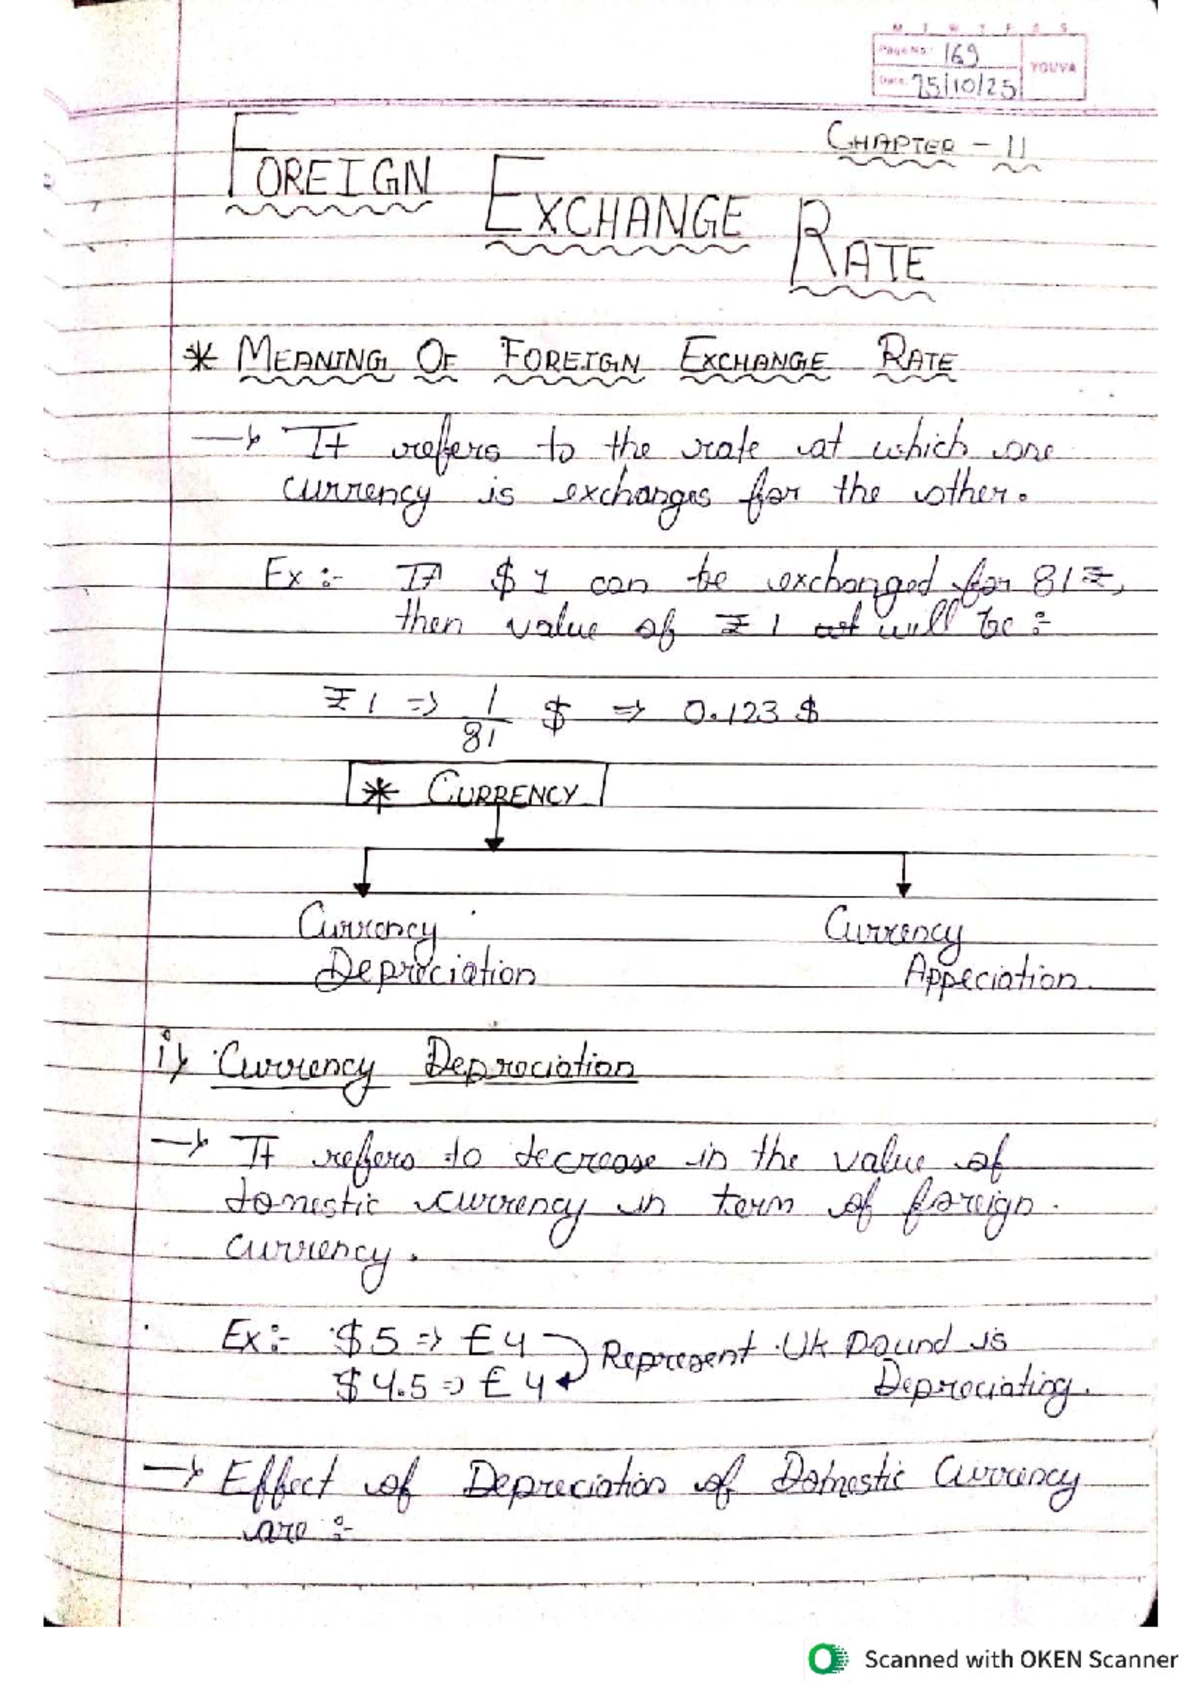 M T W T F S S
Page No.: 169
YOUVA
Date: 25/10/25
CHAPTER - 11
FOREIGN EXCHANGE RATE
* MEANING OF FOREIGN EXCHANGE RATE
→ It refers to the rate at which one
currency is exchanges for the other.
Ex :- If $ 1 can be exchanged for 81₹,
then value of ₹ 1 will be :-
₹1 => 1/81 $ => 0.123 $
* CURRENCY
Currency Depreciation
Currency Appeciation
i) Currency Depreciation
→ It refers to decrease in the value of
domestic currency in term of foreign
currency.
Ex :- $5 => £4
$4.5 => £4
Represent UK Pound is
Depreciating.
→ Effect of Depreciation of Domestic Currency
are :-
Scanned with OKEN Scanner